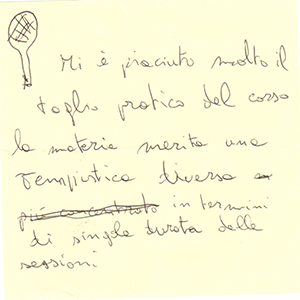 Mi è piaciuto molto il
taglio pratico del corso
la materia merita una
Tempistica diversa
più concentrata in termini
di singola durata delle
sessioni